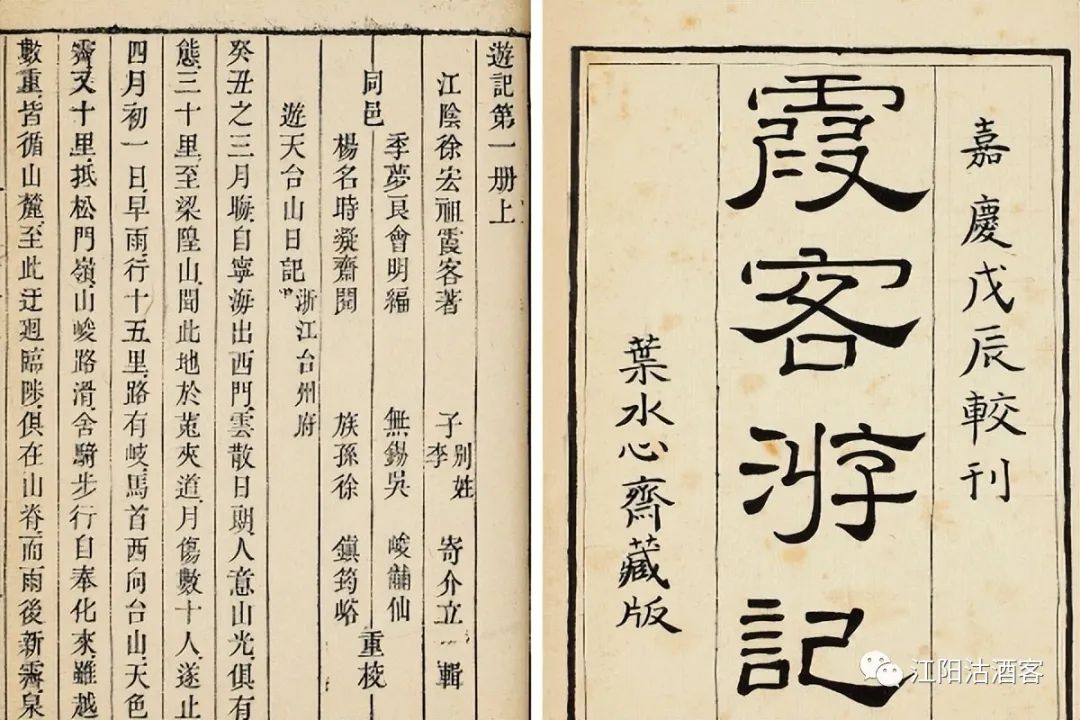 嘉慶戊辰較刊
霞客游記
葉水心齋藏版
遊記第一册上
江陰徐宏祖霞客著 子李別姓寄介立輯
季夢良會明編 無錫吳 峻黼仙
同邑 重校
楊名時凝齋閱 族孫徐 鎮筠峪
遊天台山日記 浙江台州府
癸丑之三月晦自寧海出西門、雲散日朗、人意山光、俱有
態、三十里、至梁隍山、聞此地於菟夾道、月傷數十人、遂止
四月初一日、早雨、行十五里、路有岐、馬首西向台山、天色
霽又十里、抵松門嶺、山峻路滑、舍騎步行自奉化來、雖越
數重、皆循山麓、至此迂迴臨陟、俱在山脊、而雨後新霽、泉
江阳沽酒客